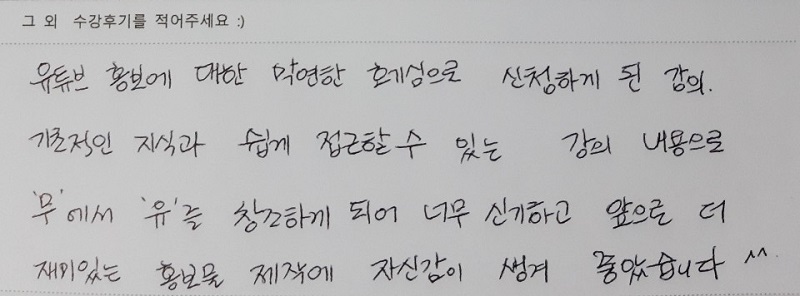 그 외 수강후기를 적어주세요 :)
유튜브 홍보에 대한 막연한 호기심으로 신청하게 된 강의.
기초적인 지식과 쉽게 접근할 수 있는 강의 내용으로
'무'에서 '유'를 창조하게 되어 너무 신기하고 앞으로 더
재미있는 홍보물 제작에 자신감이 생겨 좋았습니다 ^^